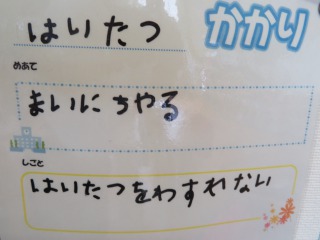 はいたつ かかり
めあて
まいにちやる
しごと
はいたつをわすれない